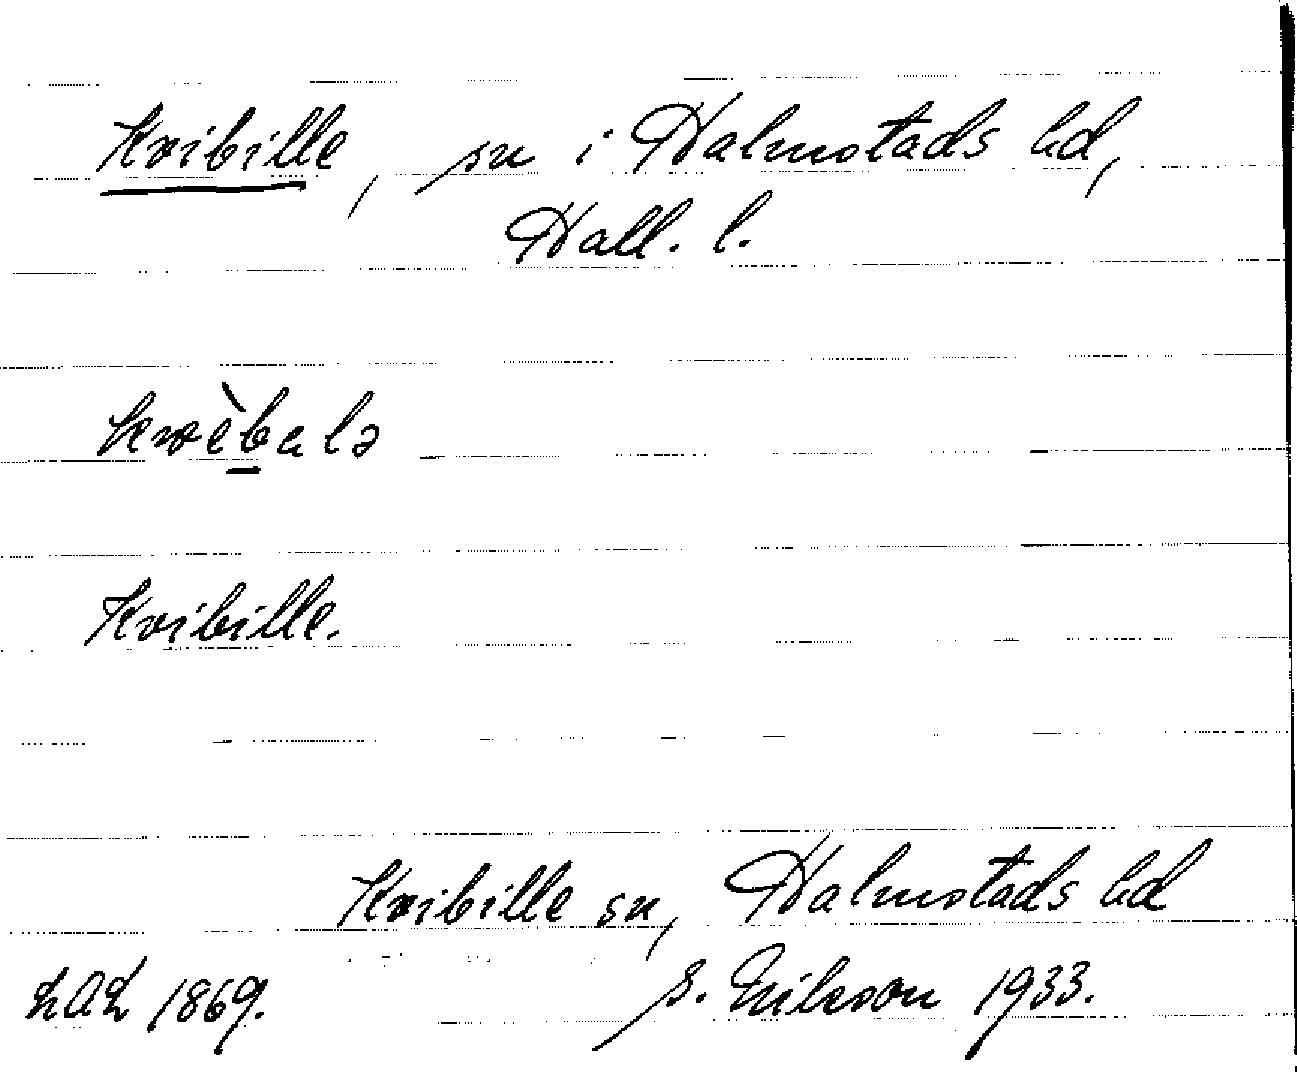 Kvibille, sn i Halmstads hd,
Hall. l.
kwèbalə
Kvibille.
Kvibille sn, Halmstads hd
LAL 1869. S. Nilsson 1933.